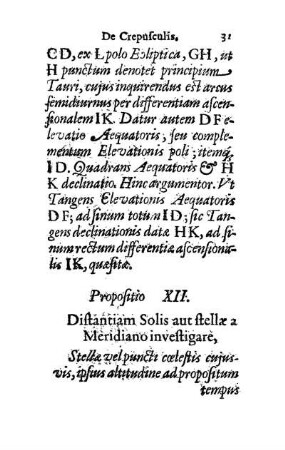 De Crepusculis. 31
CD, ex L polo Ecliptica, GH, ut
H punctum denotet principium
Tauri, cujus inquirendus est arcus
semidiurnus per differentiam ascen-
sionalem IK. Datur autem DF e-
levatio Aequatoris; seu comple-
mentum Elevationis poli; itemq́;
ID. Quadrans Aequatoris & H
K declinatio. Hinc argumentor. Vt
Tangens Elevationis Aequatoris
DF; ad sinum totum ID; sic Tan-
gens declinationis datæ HK, ad si-
num rectum differentiæ ascensiona-
lis IK, quæsitæ.
Propositio XII.
Distantiam Solis aut stellæ a
Meridiano investigare,
Stellæ vel puncti cœlestis cujus-
vis, ipsius altitudine ad propositum
tempus